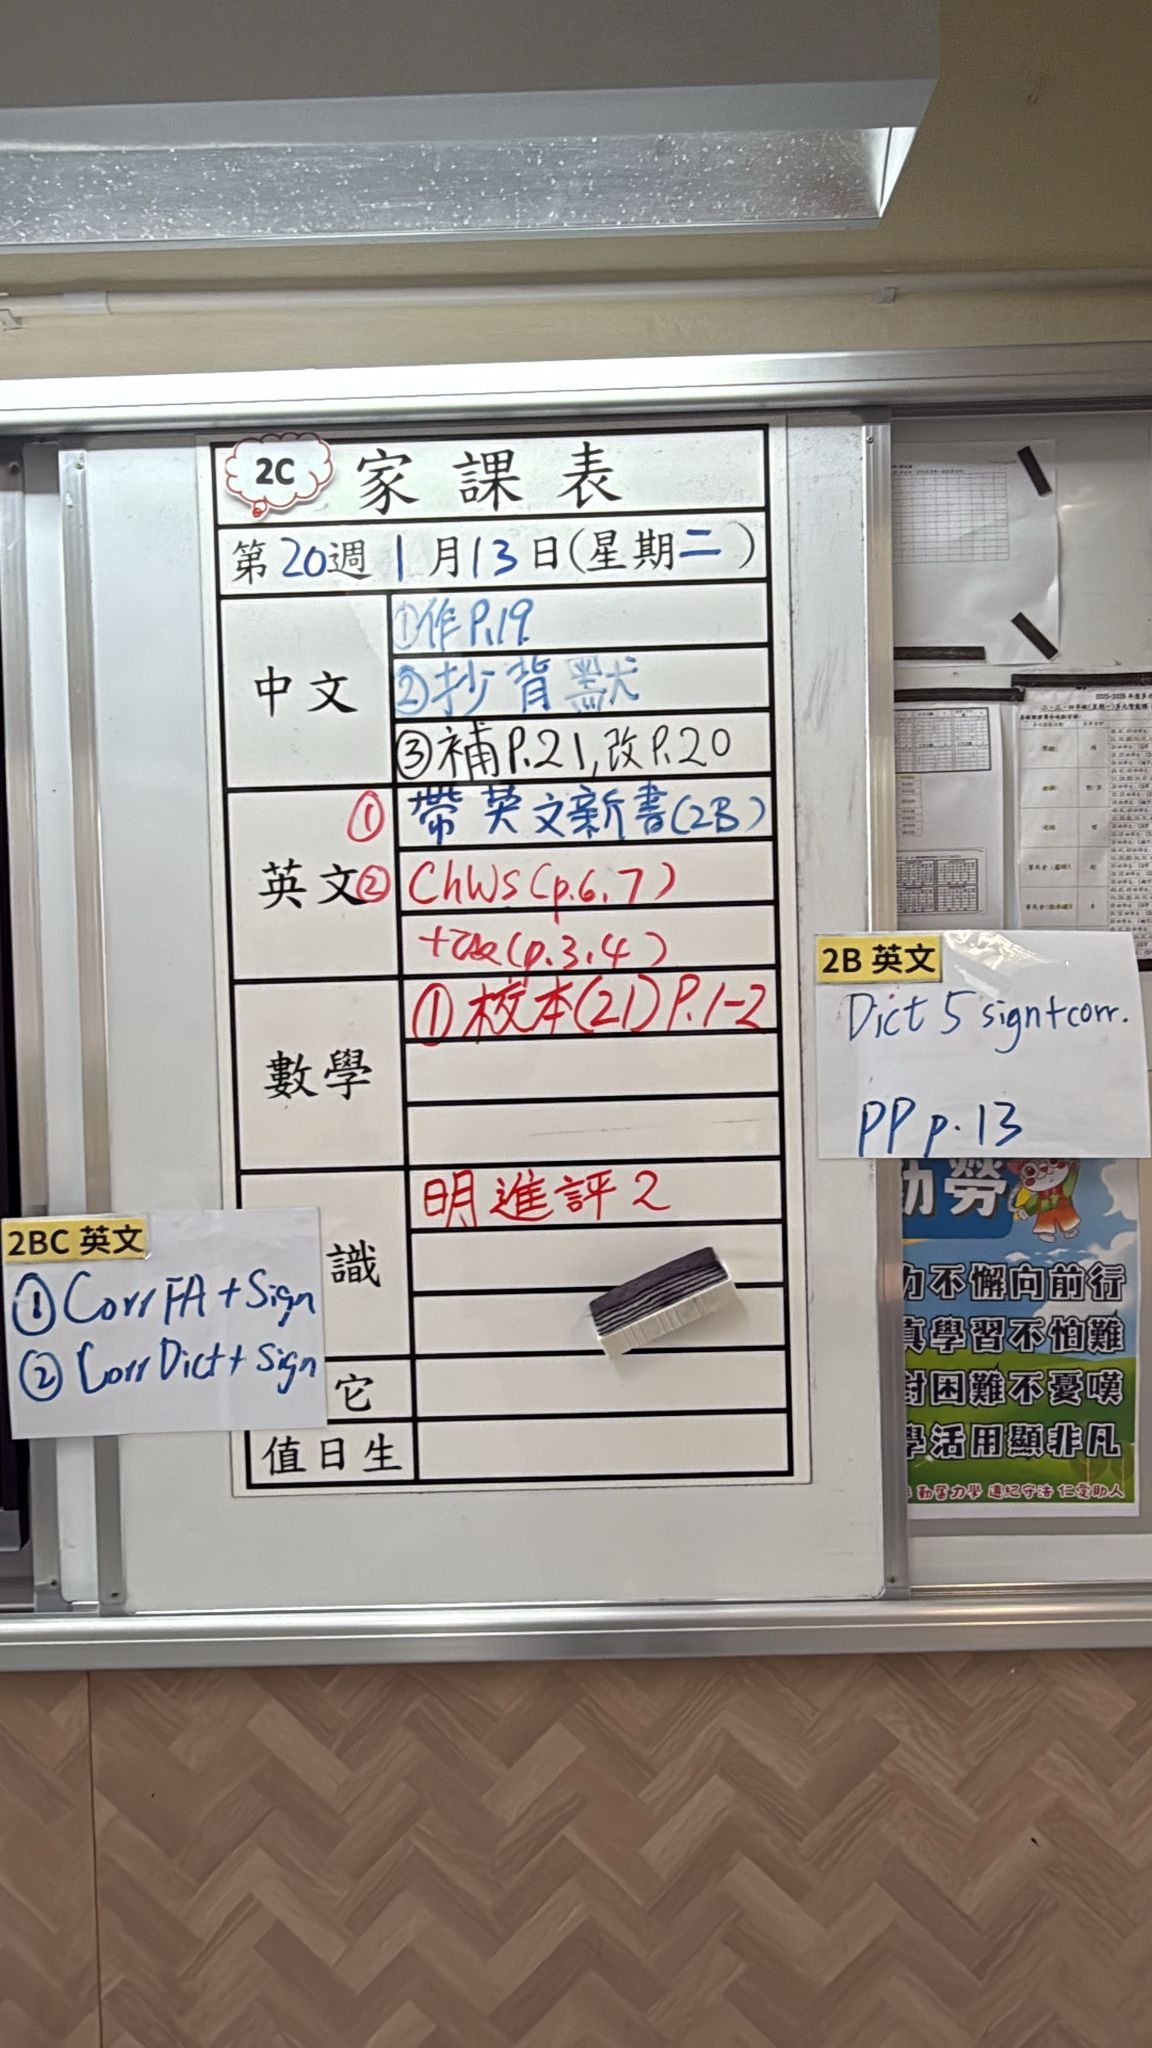 2C 家課表
第20週 1月13日(星期二)
中文
①作P.19
②抄背默
③補P.21,改P.20
英文
① 帶英文新書(2B)
② ChWs(p.6.7)
(p.3.4)
數學
①校本(21)P.1-2
識
明進評2
它
值日生
2BC 英文
①Corr FA + Sign
②Corr Dict + Sign
2B 英文
Dict 5 sign+corr.
PP p.13
勞
不懈向前行
學習不怕難
困難不憂嘆
活用顯非凡
勤奮力學 遵紀守法 仁愛助人